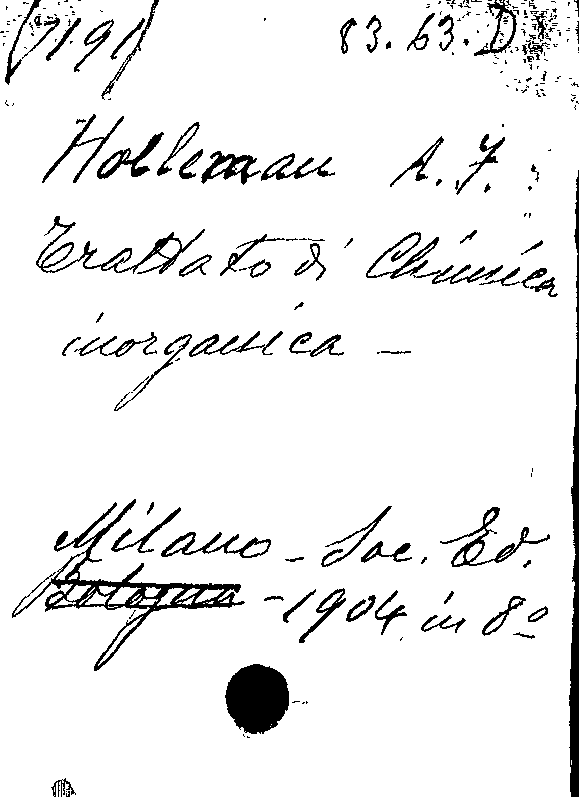 (7191) 83.63.D
Holleman A. F. :
Trattato di Chimica
inorganica –
Milano – Soc. Ed.
Bologna – 1904 in 8º